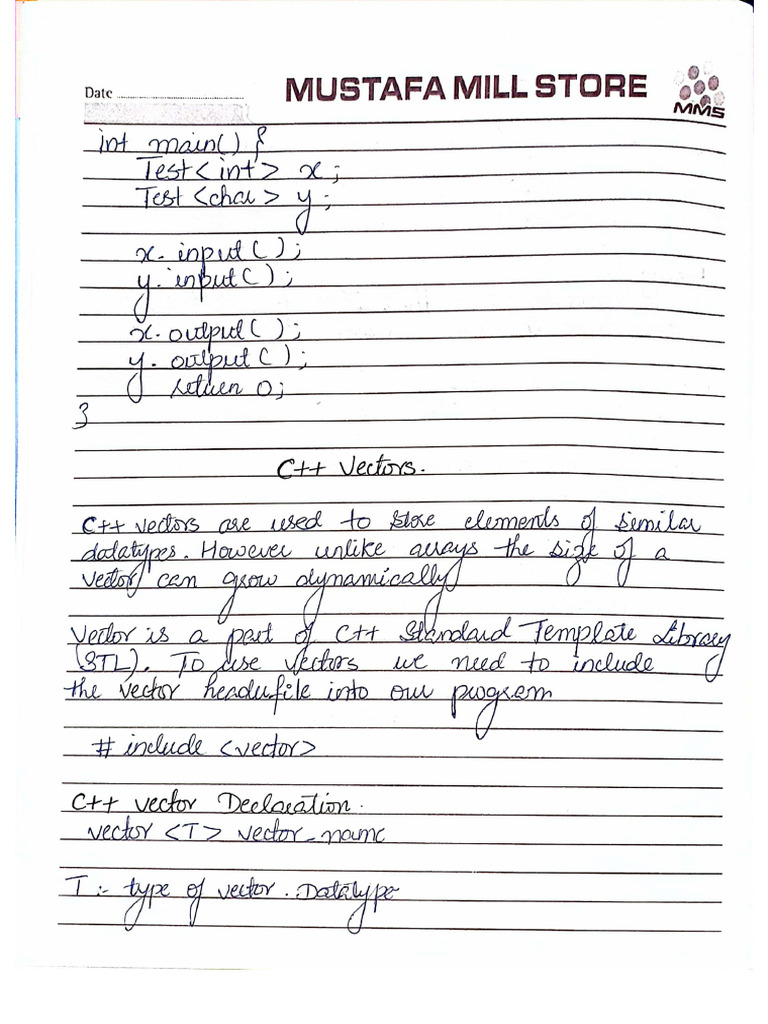 Date
MUSTAFA MILL STORE
MMS
int main() {
Test<int> x;
Test<char> y;
x. input();
y. input();
x. output();
y. output();
return 0;
}
C++ Vectors.
C++ vectors are used to store elements of similar
datatypes. However unlike arrays the size of a
vector can grow dynamically
Vector is a part of C++ Standard Template Library
(STL). To use vectors we need to include
the vector headerfile into our program
# include <vector>
C++ vector Declaration.
vector <T> vector_name
T:- type of vector. Datatype